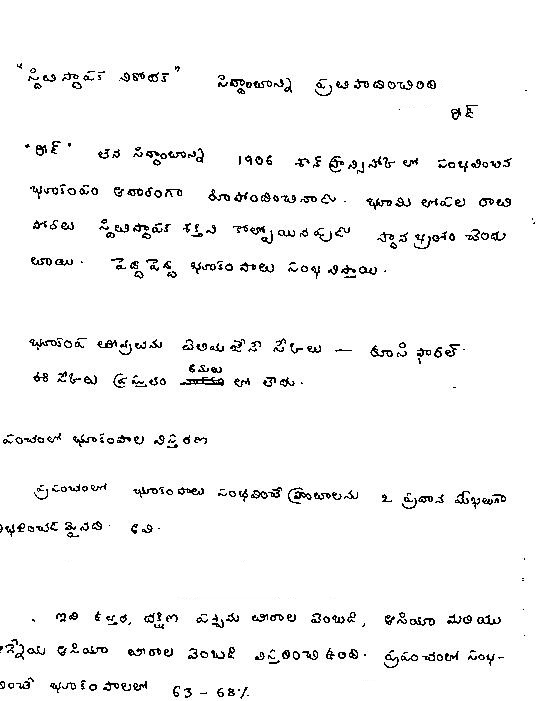 "స్థితిస్థాపక నిరోధక" సిద్ధాంతాన్ని ప్రతిపాదించింది
రీడ్
"రీడ్" తన సిద్ధాంతాన్ని 1906 శాన్ ఫ్రాన్సిస్కో లో సంభవించిన
భూకంపం ఆధారంగా రూపొందించినాడు. భూమి లోపల రాతి
పొరలు స్థితిస్థాపక శక్తిని కోల్పోయినప్పుడు స్థాన భ్రంశం చెందు
తాయి. పెద్ద పెద్ద భూకంపాలు సంభవిస్తాయి.
భూకంప తీవ్రతను తెలియజేసే స్కేలు –
ఈ స్కేలు ప్రస్తుతం అమలు లో లేదు.
పంచంలో భూకంపాల విస్తరణ
ప్రపంచంలో భూకంపాలు సంభవించే ప్రాంతాలను 2 ప్రధాన మేఖలుగా
విభజించడమైనది. అవి.
. ఇది ఉత్తర, దక్షిణ పశ్చిమ తీరాల వెంబడి, ఆసియా మరియు
ఆగ్నేయ ఆసియా తీరాల వెంబడి విస్తరించి ఉంది. ప్రపంచంలో సంభ-
వించే భూకంపాలలో 63 – 68%